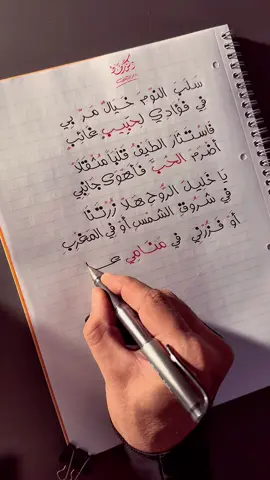 سَلَبَ النَّوْمَ خَيَالٌ مَرَّ بِي
فِي فُؤَادِي لِحَبِيبٍ غَائِبِ
فَاسْتَثَارَ الطَّيْفُ قَلْبًا مُثْقَلًا
أَضْرَمَ الْحُبَّ فَأَهْوَى جَانِبِي
يَا خَلِيلَ الرُّوحِ هَلَّا زُرْتَنَا
فِي شُرُوقِ الشَّمْسِ أَوْ فِي الْمَغْرِبِ
أَوْ فَزُرْنِي فِي مَنَامِي